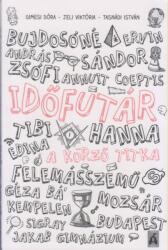 GIMESI DÓRA – ZELI VIKTÓRIA – TASNÁDI ISTVÁN
BUJDOSÓNÉ ERVIN
ANDRÁS SÁNDOR
ZSÓFI ANNUIT COEPTIS
IDŐFUTÁR
TIBI HANNA
EDINA A KÖRZŐ TITKA
FELEMÁSSZEMŰ
GÉZA BÁ' MOZSÁR
KEMPELEN
SIGRAY BUDAPEST
JAKAB GIMNÁZIUM